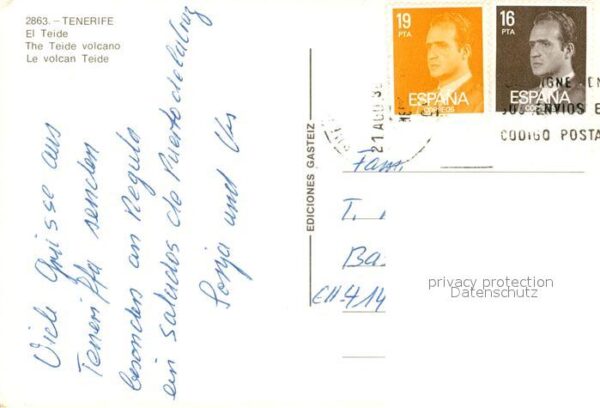 2863. - TENERIFE
El Teide
The Teide volcano
Le volcan Teide
Viele Grüsse aus
Teneriffa senden
besonders an Regulo
ein saludos de Puerto de la Cruz
Sonja und Urs
EDICIONES GASTEIZ
19
PTA
ESPAÑA
CORREOS
16
PTA
ESPAÑA
21 AGO
IGNE EN
SUS ENVIOS E
CODIGO POSTA
Fam.
T.
Ba
CH-414
privacy protection
Datenschutz